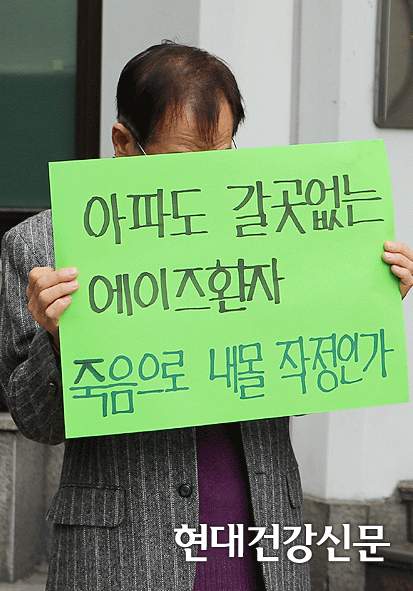 아파도 갈곳없는
에이즈환자
죽음으로 내몰 작정인가
현대건강신문